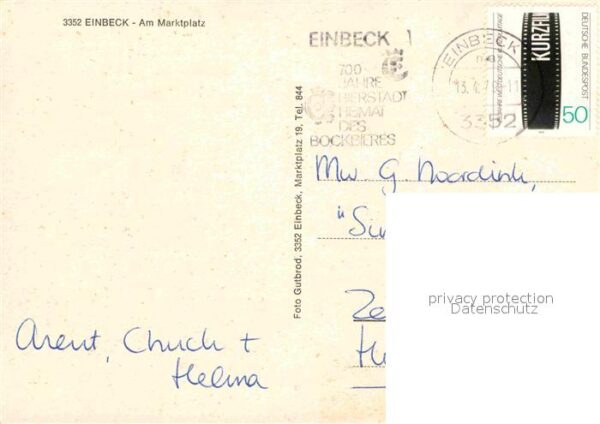 3352 EINBECK - Am Marktplatz
EINBECK
700
JAHRE
BIERSTADT
HEIMAT
DES
BOCKBIERES
EINBECK
3352
KURZFILM
DEUTSCHE BUNDESPOST
50
Foto Gutbrod, 3352 Einbeck, Marktplatz 19, Tel. 844
Mw G Noordink,
"Sin
Ze
He
privacy protection
Datenschutz
Arent, Chuck +
Helma